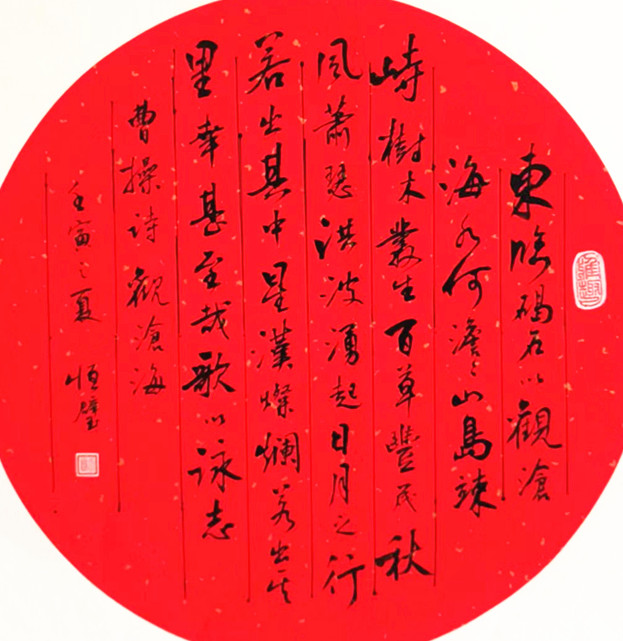 東臨碣石以觀滄
海水何澹々山島竦
峙樹木叢生百草豐茂秋
風蕭瑟洪波湧起日月之行
若出其中星漢燦爛若出其
里幸甚至哉歌以詠志
曹操诗觀滄海
壬寅之夏 恒璧
雅趣